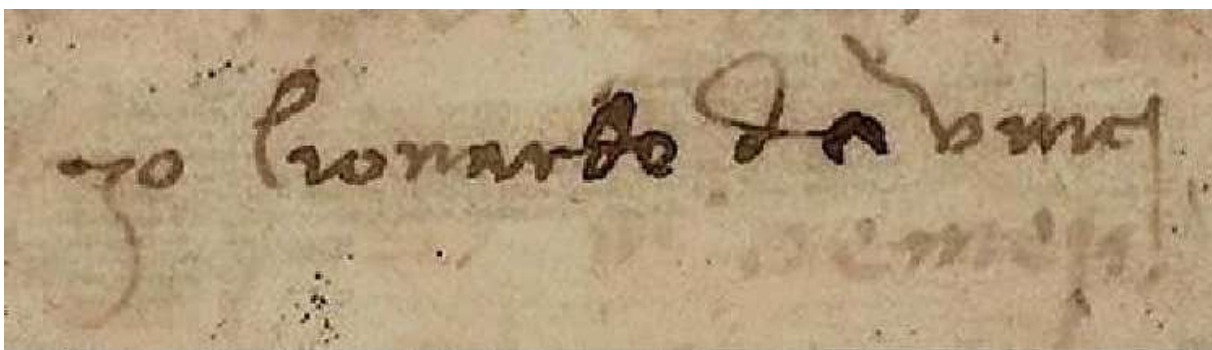 yo lionardo da vinci